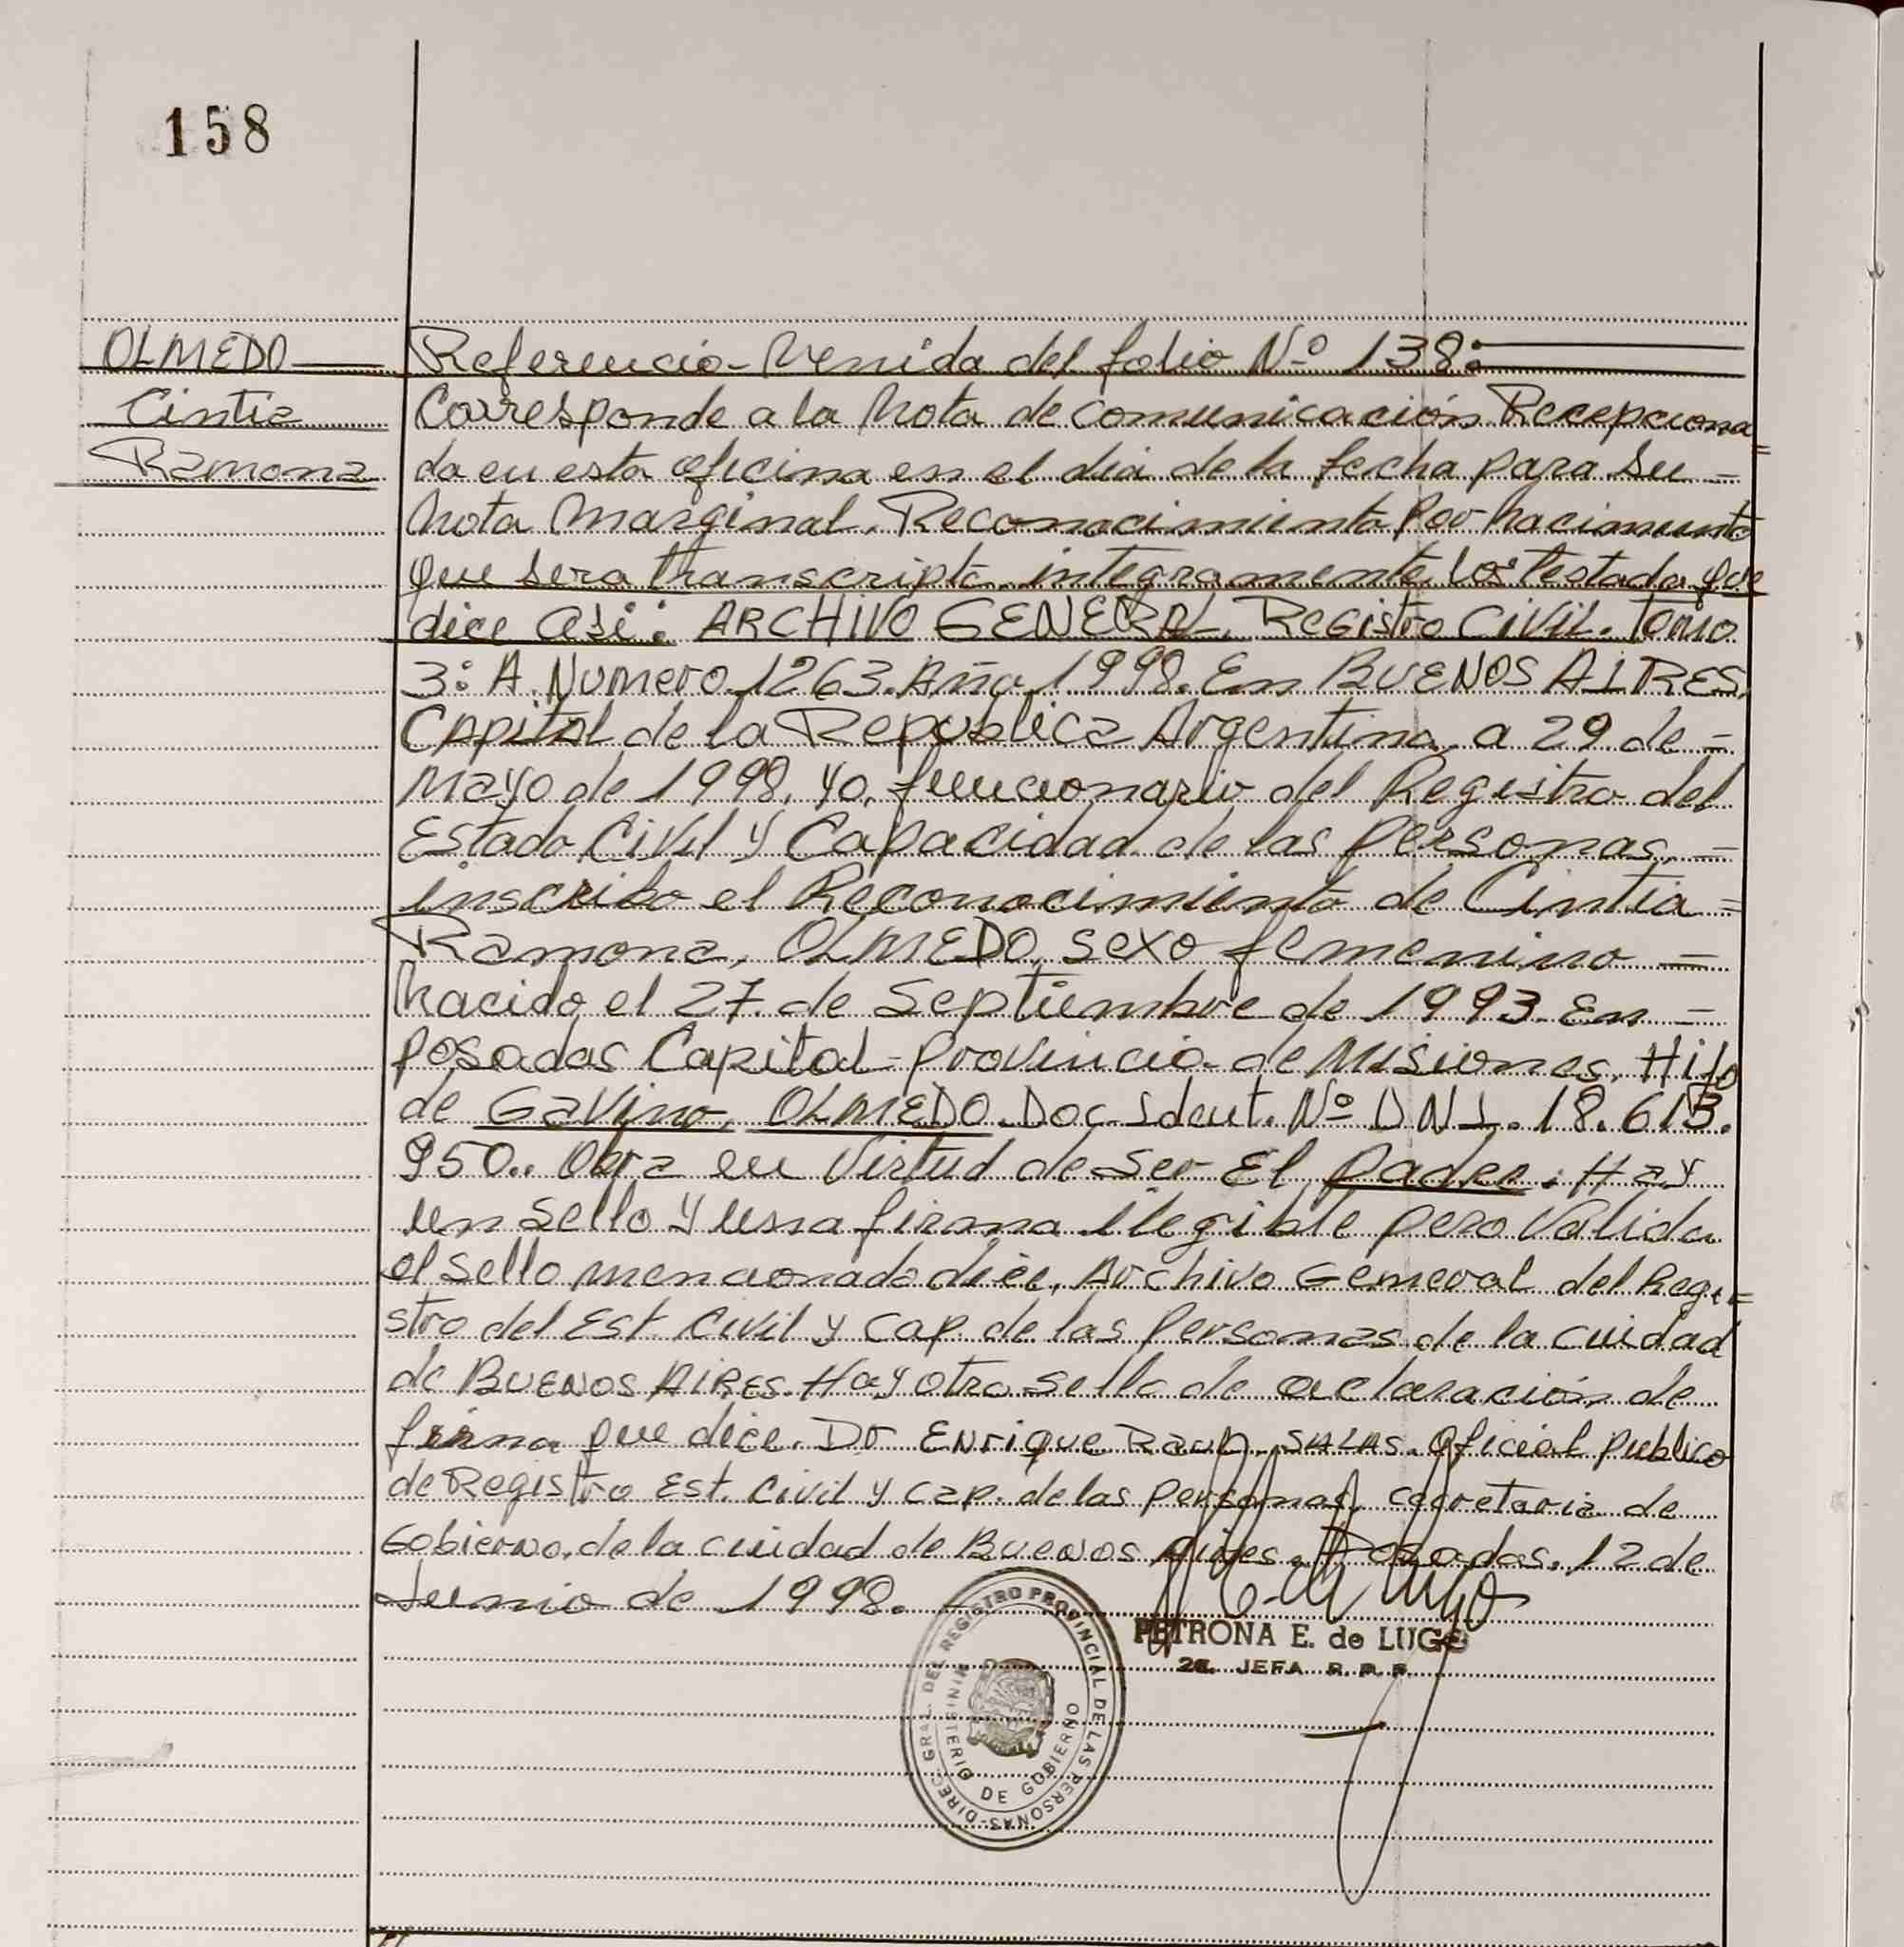 158
OLMEDO
Cintia
Ramona
Referencia - Venida del folio Nº 138:
Corresponde a la Nota de comunicación Recepciona=
da en esta oficina en el dia de la fecha para su =
Nota Marginal. Reconocimiento Por Nacimiento
que sera transcripta integramente los testada que
dice asi: ARCHIVO GENERAL. Registro Civil. Tomo
3: A. Numero 1263. Año 1998. En BUENOS AIRES,
Capital de la Republica Argentina, a 29 de =
Mayo de 1998. yo, funcionario del Registro del
Estado Civil y Capacidad de las personas, =
inscribo el Reconocimiento de Cintia =
Ramona, OLMEDO, sexo femenino =
Nacido el 27 de Septiembre de 1993 En =
posadas Capital - Provincia de Misiones. Hijo
de Gavino, OLMEDO. Doc. Ident. Nº DNI. 18.613.
950.. Obra en Virtud de ser El Padre. Hay
un sello y una firma ilegible pero Valida
el sello mencionado dice, Archivo General del Regi=
stro del Est. Civil y Cap. de las Personas de la cuidad
de BUENOS AIRES. Hay otro sello de aclaración de
firma que dice. Dr Enrique Raul SALAS. Oficial publico
de Registro Est. Civil y Cap. de las personas, secretaria de
Gobierno, de la cuidad de Buenos Aires. Posadas, 12 de
Junio de 1998.
PETRONA E. de LUGO
2a. JEFA R. P. P.
DIREC. GRAL. DEL REGISTRO PROVINCIAL DE LAS PERSONAS
MINISTERIO DE GOBIERNO